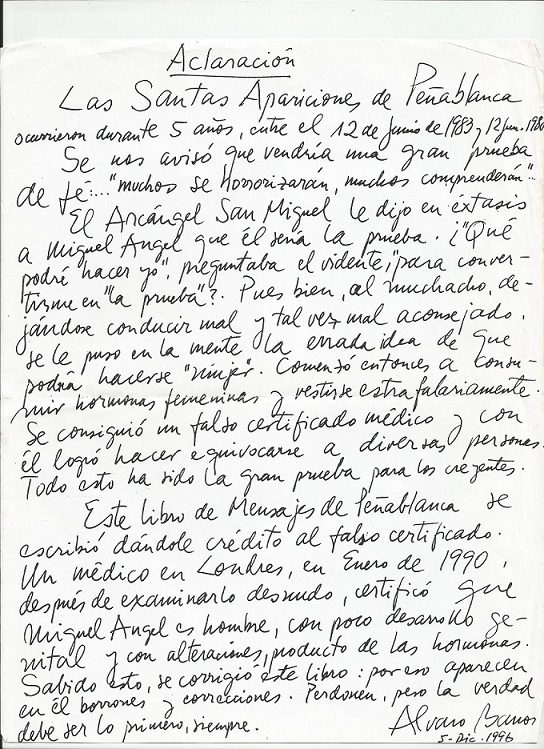 Aclaración
Las Santas Apariciones de Peñablanca
ocurrieron durante 5 años, entre el 12 de Junio de 1983 y 12 Jun. 1988
Se nos avisó que vendría una gran prueba
de fé...."muchos se horrorizarán, muchos comprenderán"...
El Arcángel San Miguel le dijo en éxtasis
a Miguel Angel que él sería la prueba. ¿"Qué
podré hacer yo", preguntaba el vidente, "para conver-
tirme en "la prueba"? Pues bien, al muchacho, de-
jándose conducir mal y tal vez mal aconsejado,
se le puso en la mente la errada idea de que
podría hacerse "mujer". Comenzó entonces a consu-
mir hormonas femeninas y vestirse estrafalariamente.
Se consiguió un falso certificado médico y con
él logró hacer equivocarse a diversas personas.
Todo esto ha sido la gran prueba para los creyentes.
Este libro de Mensajes de Peñablanca se
escribió dándole crédito al falso certificado.
Un médico en Londres, en Enero de 1990,
después de examinarlo desnudo, certificó que
Miguel Angel es hombre, con poco desarrollo ge-
nital y con alteraciones, producto de las hormonas.
Sabido esto, se corrigió este libro: por eso aparecen
en él borrones y correcciones. Perdonen, pero la verdad
debe ser lo primero, siempre.
Alvaro Barros
5-Dic. 1996